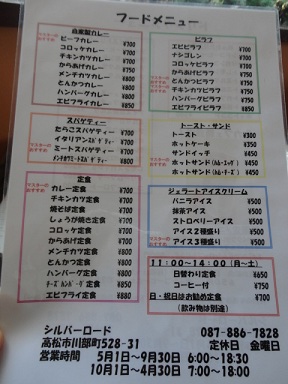 フードメニュー
自家製カレー
ビーフカレー ¥700
コロッケカレー ¥700
チキンカツカレー ¥700
からあげカレー ¥750
メンチカツカレー ¥800
とんかつカレー ¥800
ハンバーグカレー ¥800
エビフライカレー ¥850
スパゲティー
マスターのおすすめ
たらこスパゲティー ¥700
イタリアンスパゲティー ¥700
ミートスパゲティー ¥700
定食
マスターのおすすめ
カレー定食 ¥700
チキンカツ定食 ¥700
焼そば定食 ¥700
しょうが焼き定食 ¥700
コロッケ定食 ¥700
からあげ定食 ¥700
メンチカツ定食 ¥750
とんかつ定食 ¥800
ハンバーグ定食 ¥800
エビフライ定食 ¥880
ピラフ
エビピラフ ¥700
ナシゴレン ¥700
コロッケピラフ ¥700
からあげピラフ ¥750
とんかつピラフ
チキンカツピラフ
ハンバーグピラフ
エビフライピラフ ¥850
トースト・サンド
トースト ¥300
ホットケーキ ¥350
サンドイッチ ¥450
ホットサンド
ホットサンド
ジェラートアイスクリーム
バニラアイス ¥500
抹茶アイス ¥500
ストロベリーアイス ¥500
アイス2種盛り ¥500
アイス3種盛り
11:00~14:00(月~土)
日替わり定食 ¥650
コーヒー付 ¥750
日・祝日はお勧め定食 ¥700
(飲み物は別途)
シルバーロード 087-886-7828
高松市川部町528-31 定休日 金曜日
営業時間 5月1日~9月30日 6:00~18:30
10月1日~4月30日 7:00~18:00